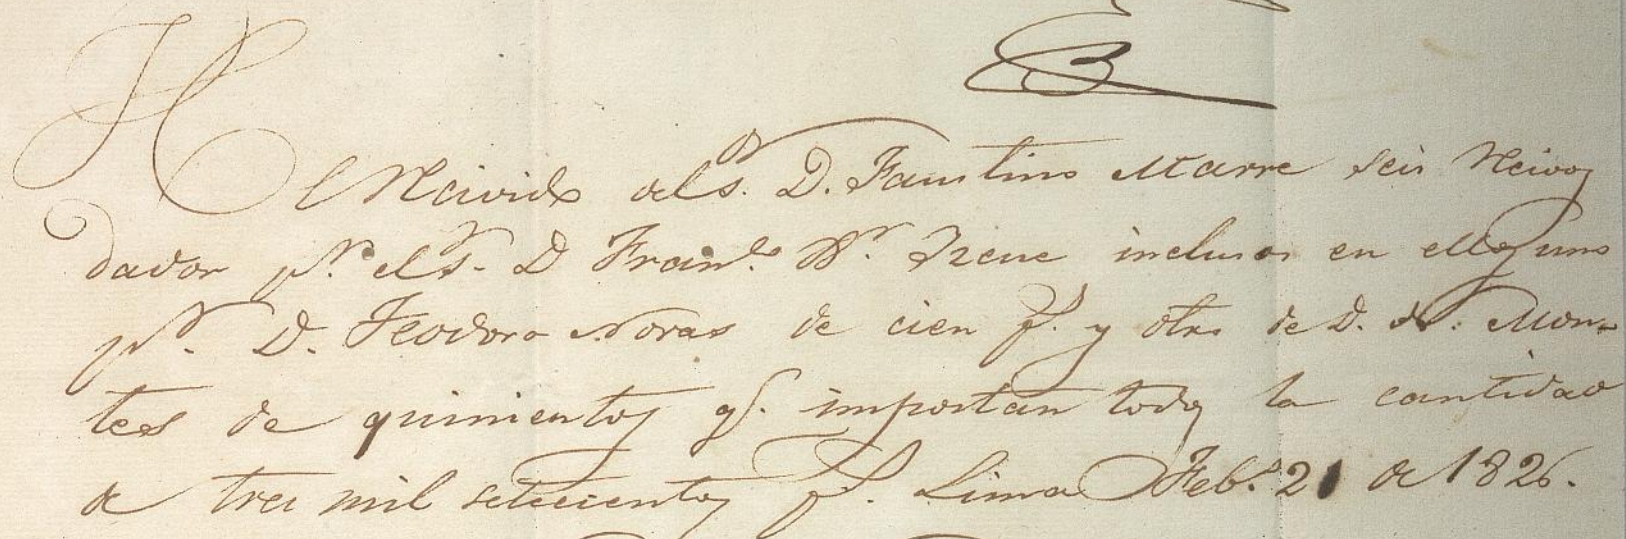 He Recivido del S. D. Faustino Marre seis Recivos
dados pr. el S. D Franco. Xr. Izcue inclusos en ellos uno
pr. D. Teodoro Noras de cien ps. y otro de D. N. Mon-
tes de quinientos qe. importan todos la cantidad
de tres mil setecientos ps. Lima Febo. 21 de 1826.